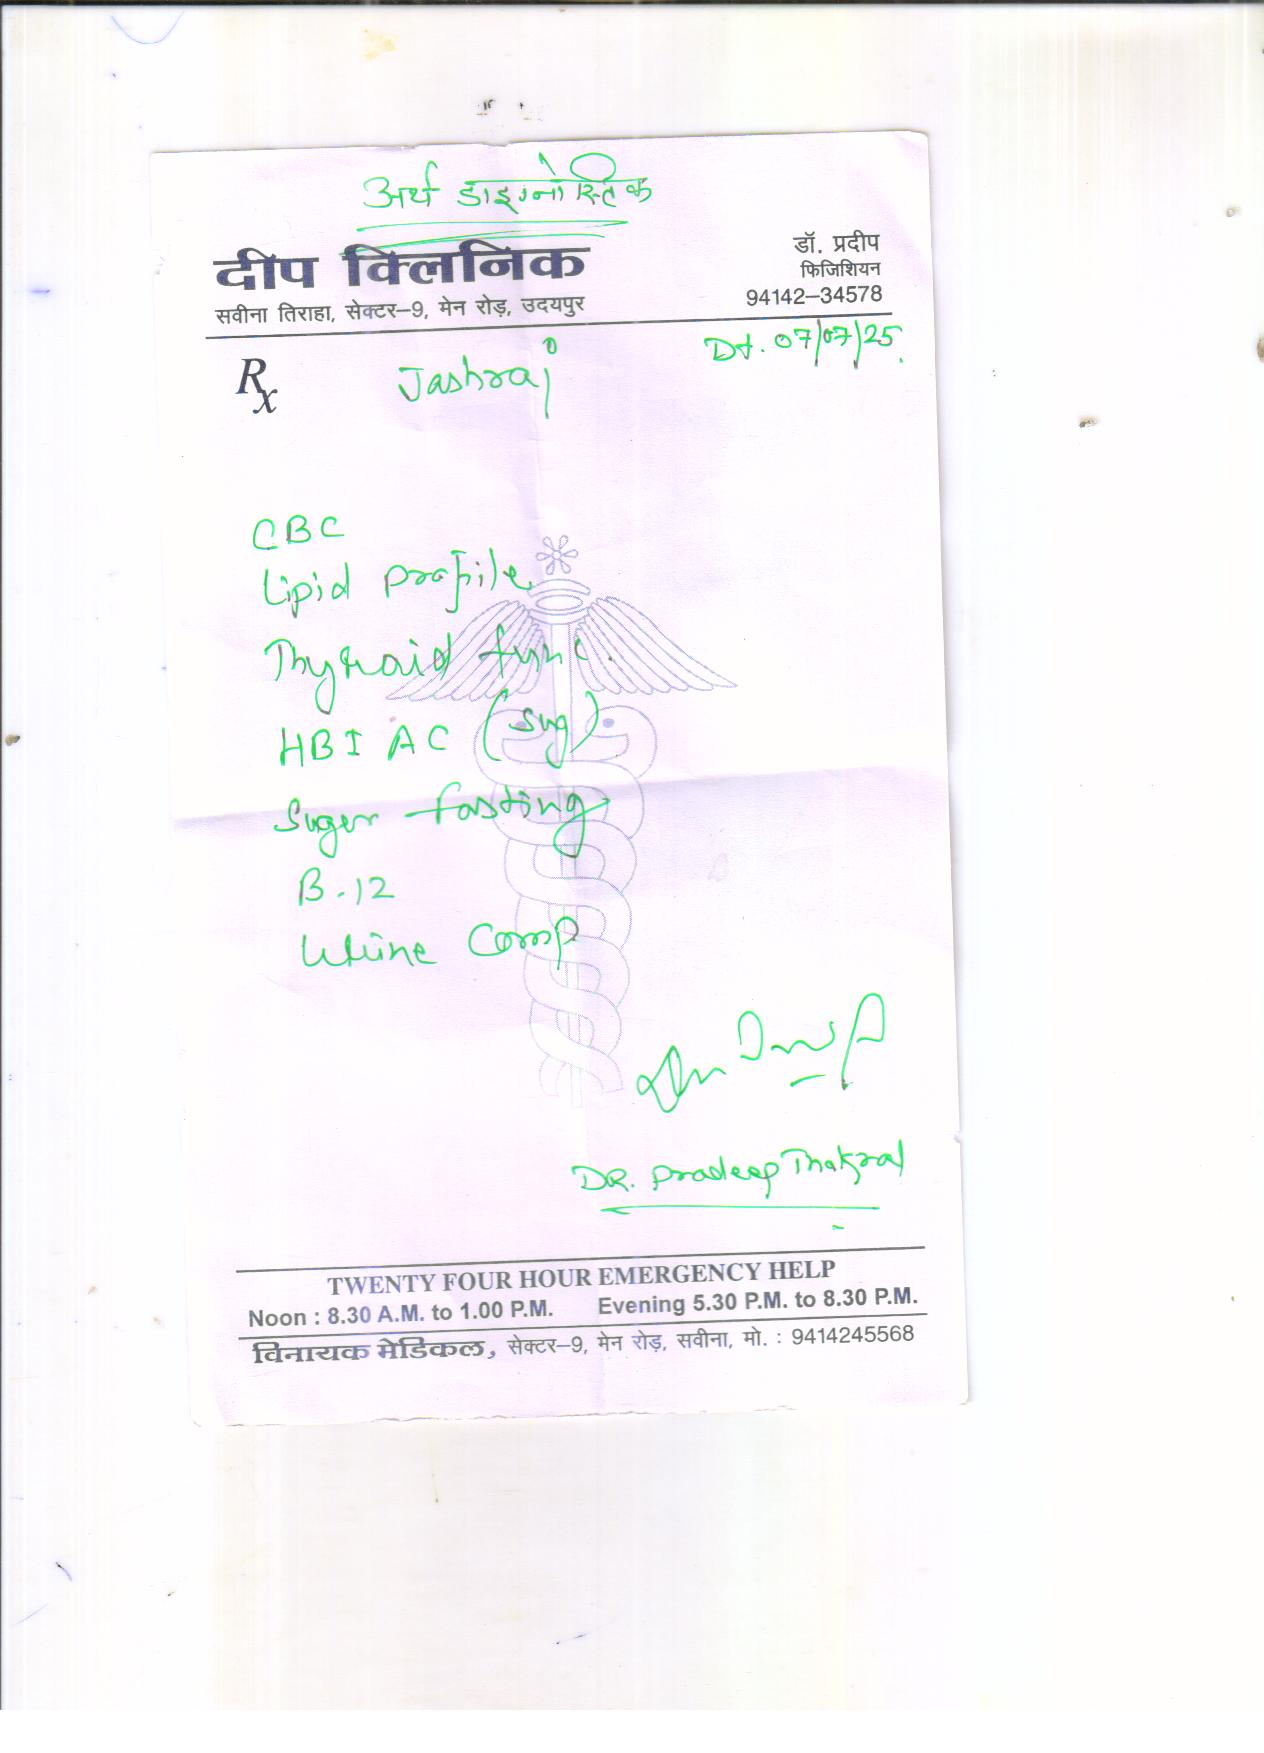 अर्थ डाइग्नोस्टिक
दीप क्लिनिक
सवीना तिराहा, सेक्टर–9, मेन रोड़, उदयपुर
डॉ. प्रदीप
फिजिशियन
94142–34578
Rx
Jashraj
Dt. 07/07/25.
CBC
Lipid profile
Thyroid func.
HBI AC (sug)
Suger fasting
B-12
Urine Comp
DR. Pradeep Thakral
TWENTY FOUR HOUR EMERGENCY HELP
Noon : 8.30 A.M. to 1.00 P.M. Evening 5.30 P.M. to 8.30 P.M.
विनायक मेडिकल, सेक्टर–9, मेन रोड़, सवीना, मो. : 9414245568